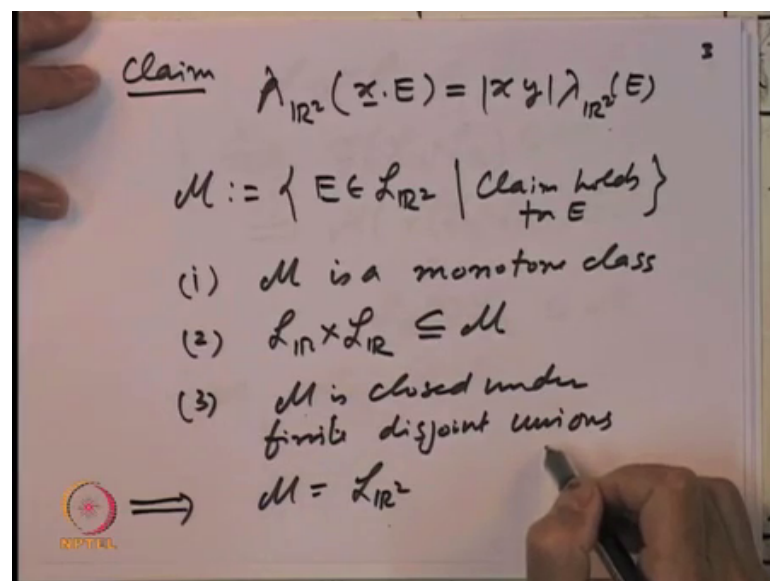 3
Claim λ_{ℝ²}(x̲·E) = |xy| λ_{ℝ²}(E)
ℳ := { E ∈ ℒ_{ℝ²} | Claim holds for E }
(i) ℳ is a monotone class
(2) ℒ_ℝ × ℒ_ℝ ⊆ ℳ
(3) ℳ is closed under
finite disjoint unions
⟹ ℳ = ℒ_{ℝ²}
NPTEL